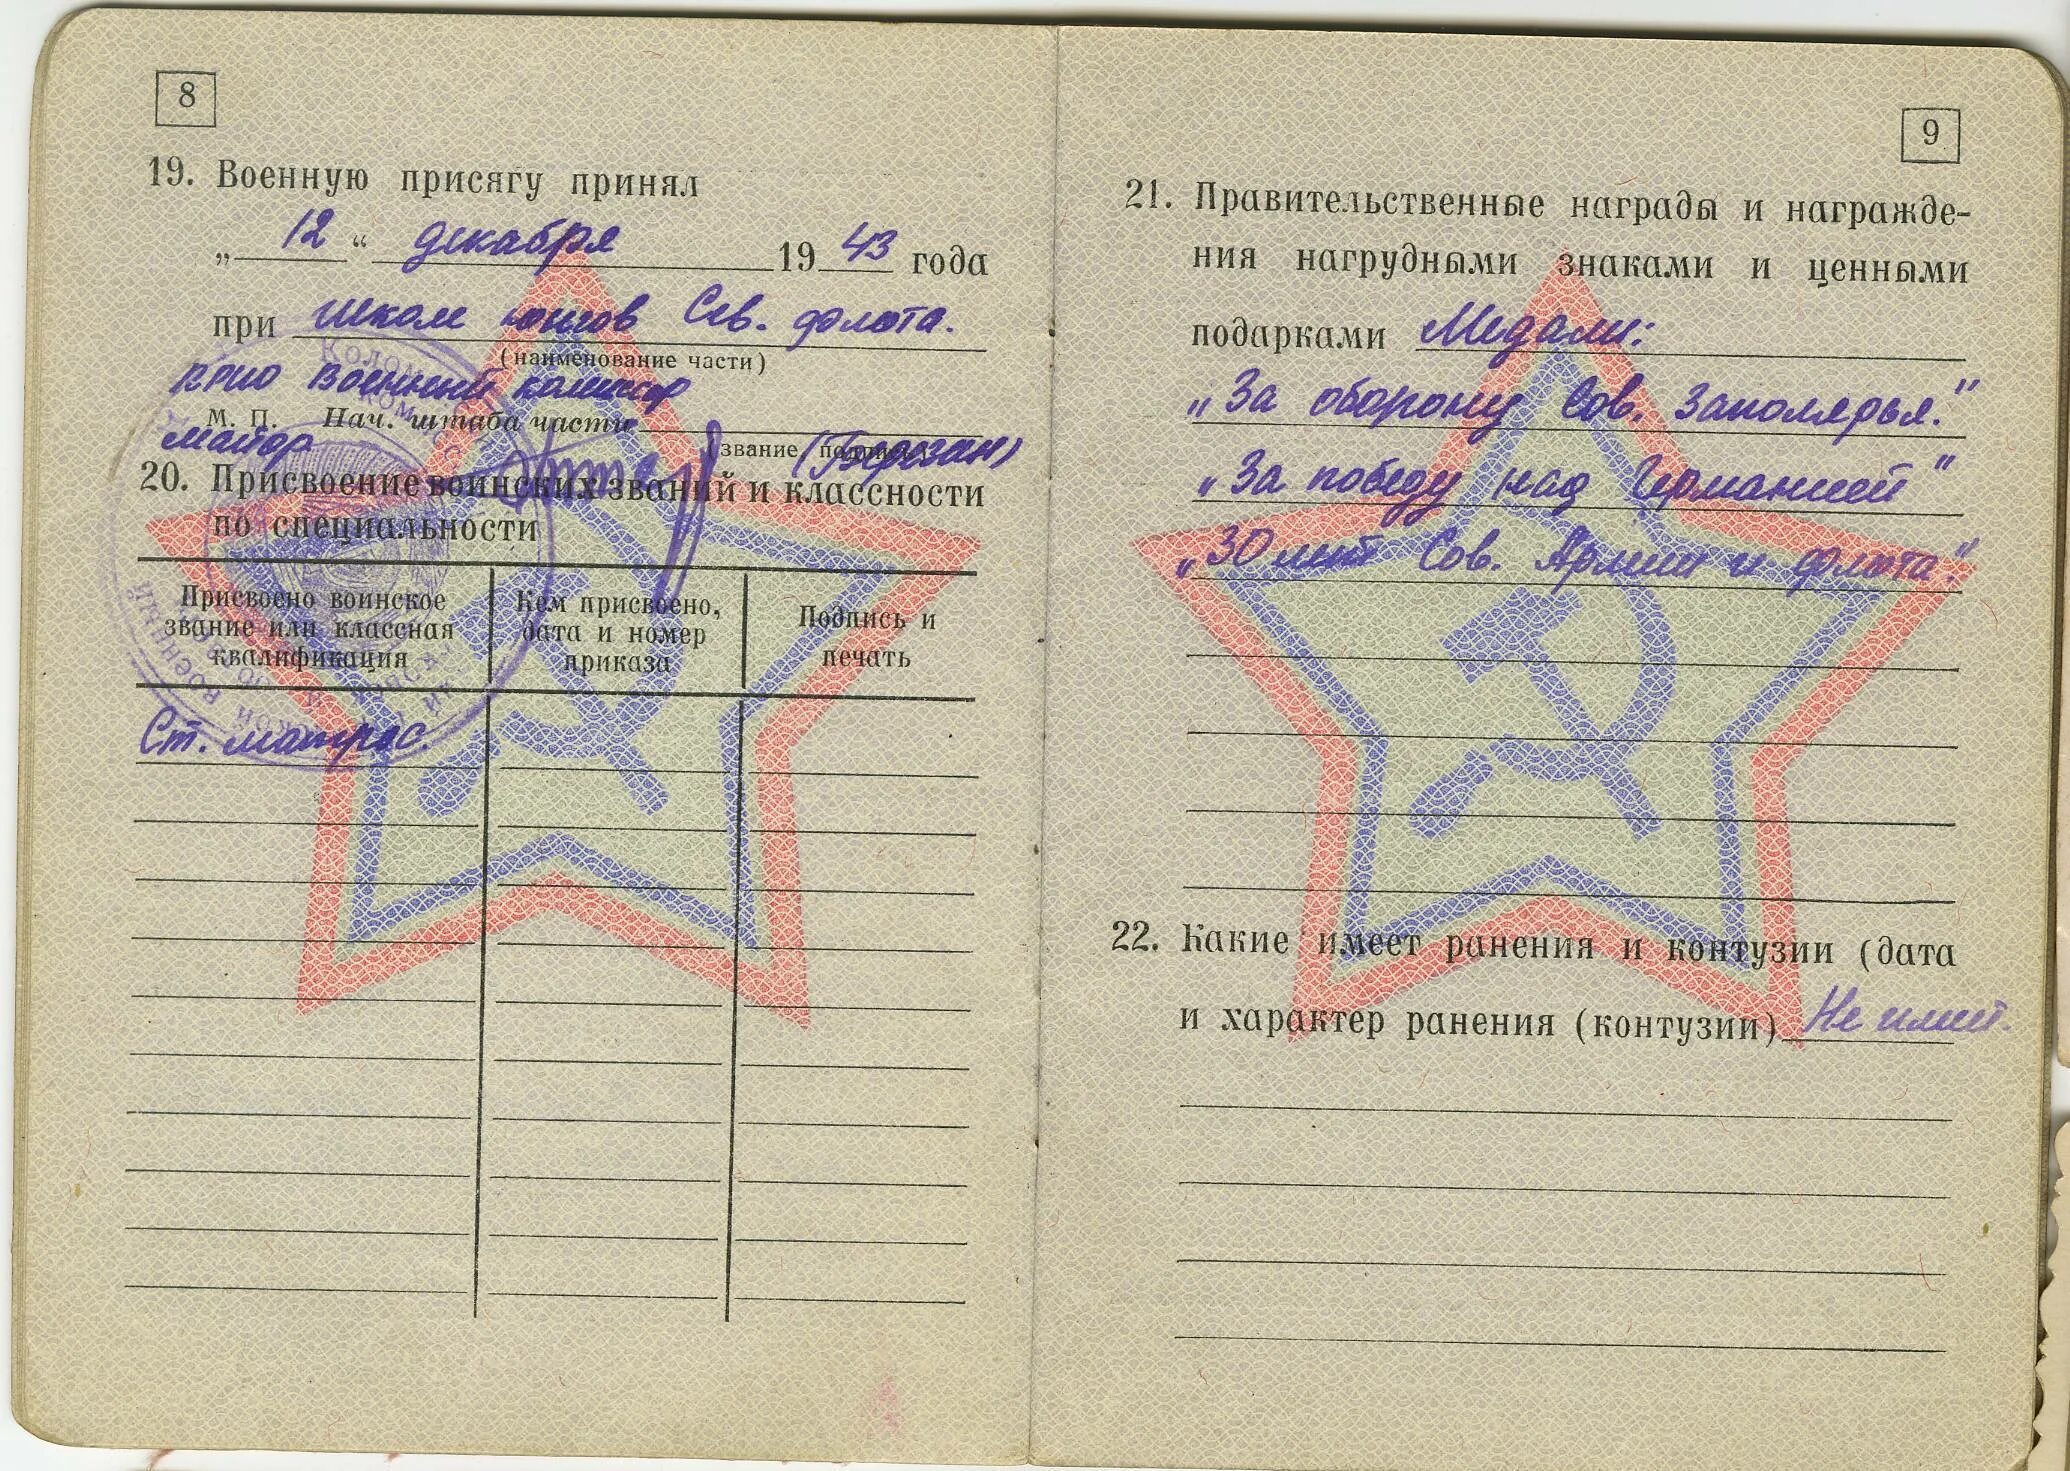 8
19. Военную присягу принял
„ 12 “ декабря 1943 года
при Школе юнгов Сев. флота.
(наименование части)
врио военный комиссар
М. П. Нач. штаба части
майор (звание, подпись) (Березан)
20. Присвоение воинских званий и классности
по специальности
Присвоено воинское звание или классная квалификация
Кем присвоено, дата и номер приказа
Подпись и печать
Ст. матрос.
9
21. Правительственные награды и награжде-
ния нагрудными знаками и ценными
подарками Медали:
„За оборону Сов. Заполярья.“
„За победу над Германией“
„30 лет Сов. Армии и флота“.
22. Какие имеет ранения и контузии (дата
и характер ранения (контузии) Не имеет.